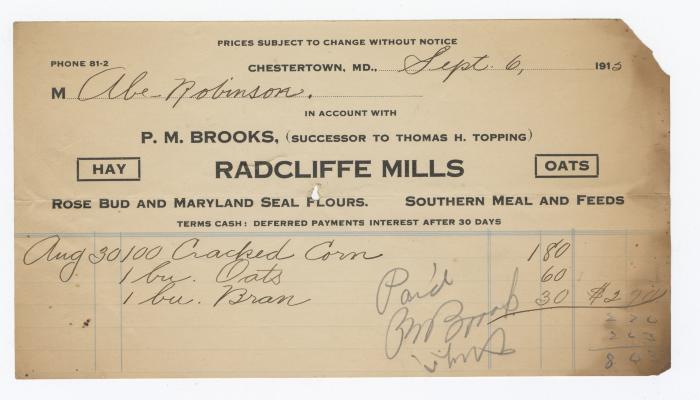 PRICES SUBJECT TO CHANGE WITHOUT NOTICE
PHONE 81-2
CHESTERTOWN, MD., Sept. 6, 1915
M Abe Robinson.
IN ACCOUNT WITH
P. M. BROOKS, (SUCCESSOR TO THOMAS H. TOPPING)
HAY RADCLIFFE MILLS OATS
ROSE BUD AND MARYLAND SEAL FLOURS. SOUTHERN MEAL AND FEEDS
TERMS CASH: DEFERRED PAYMENTS INTEREST AFTER 30 DAYS
Aug 30 100 Cracked Corn 180
1 bu. Oats 60
1 bu. Bran 30 $2.70
Pai'd
PM Brooks